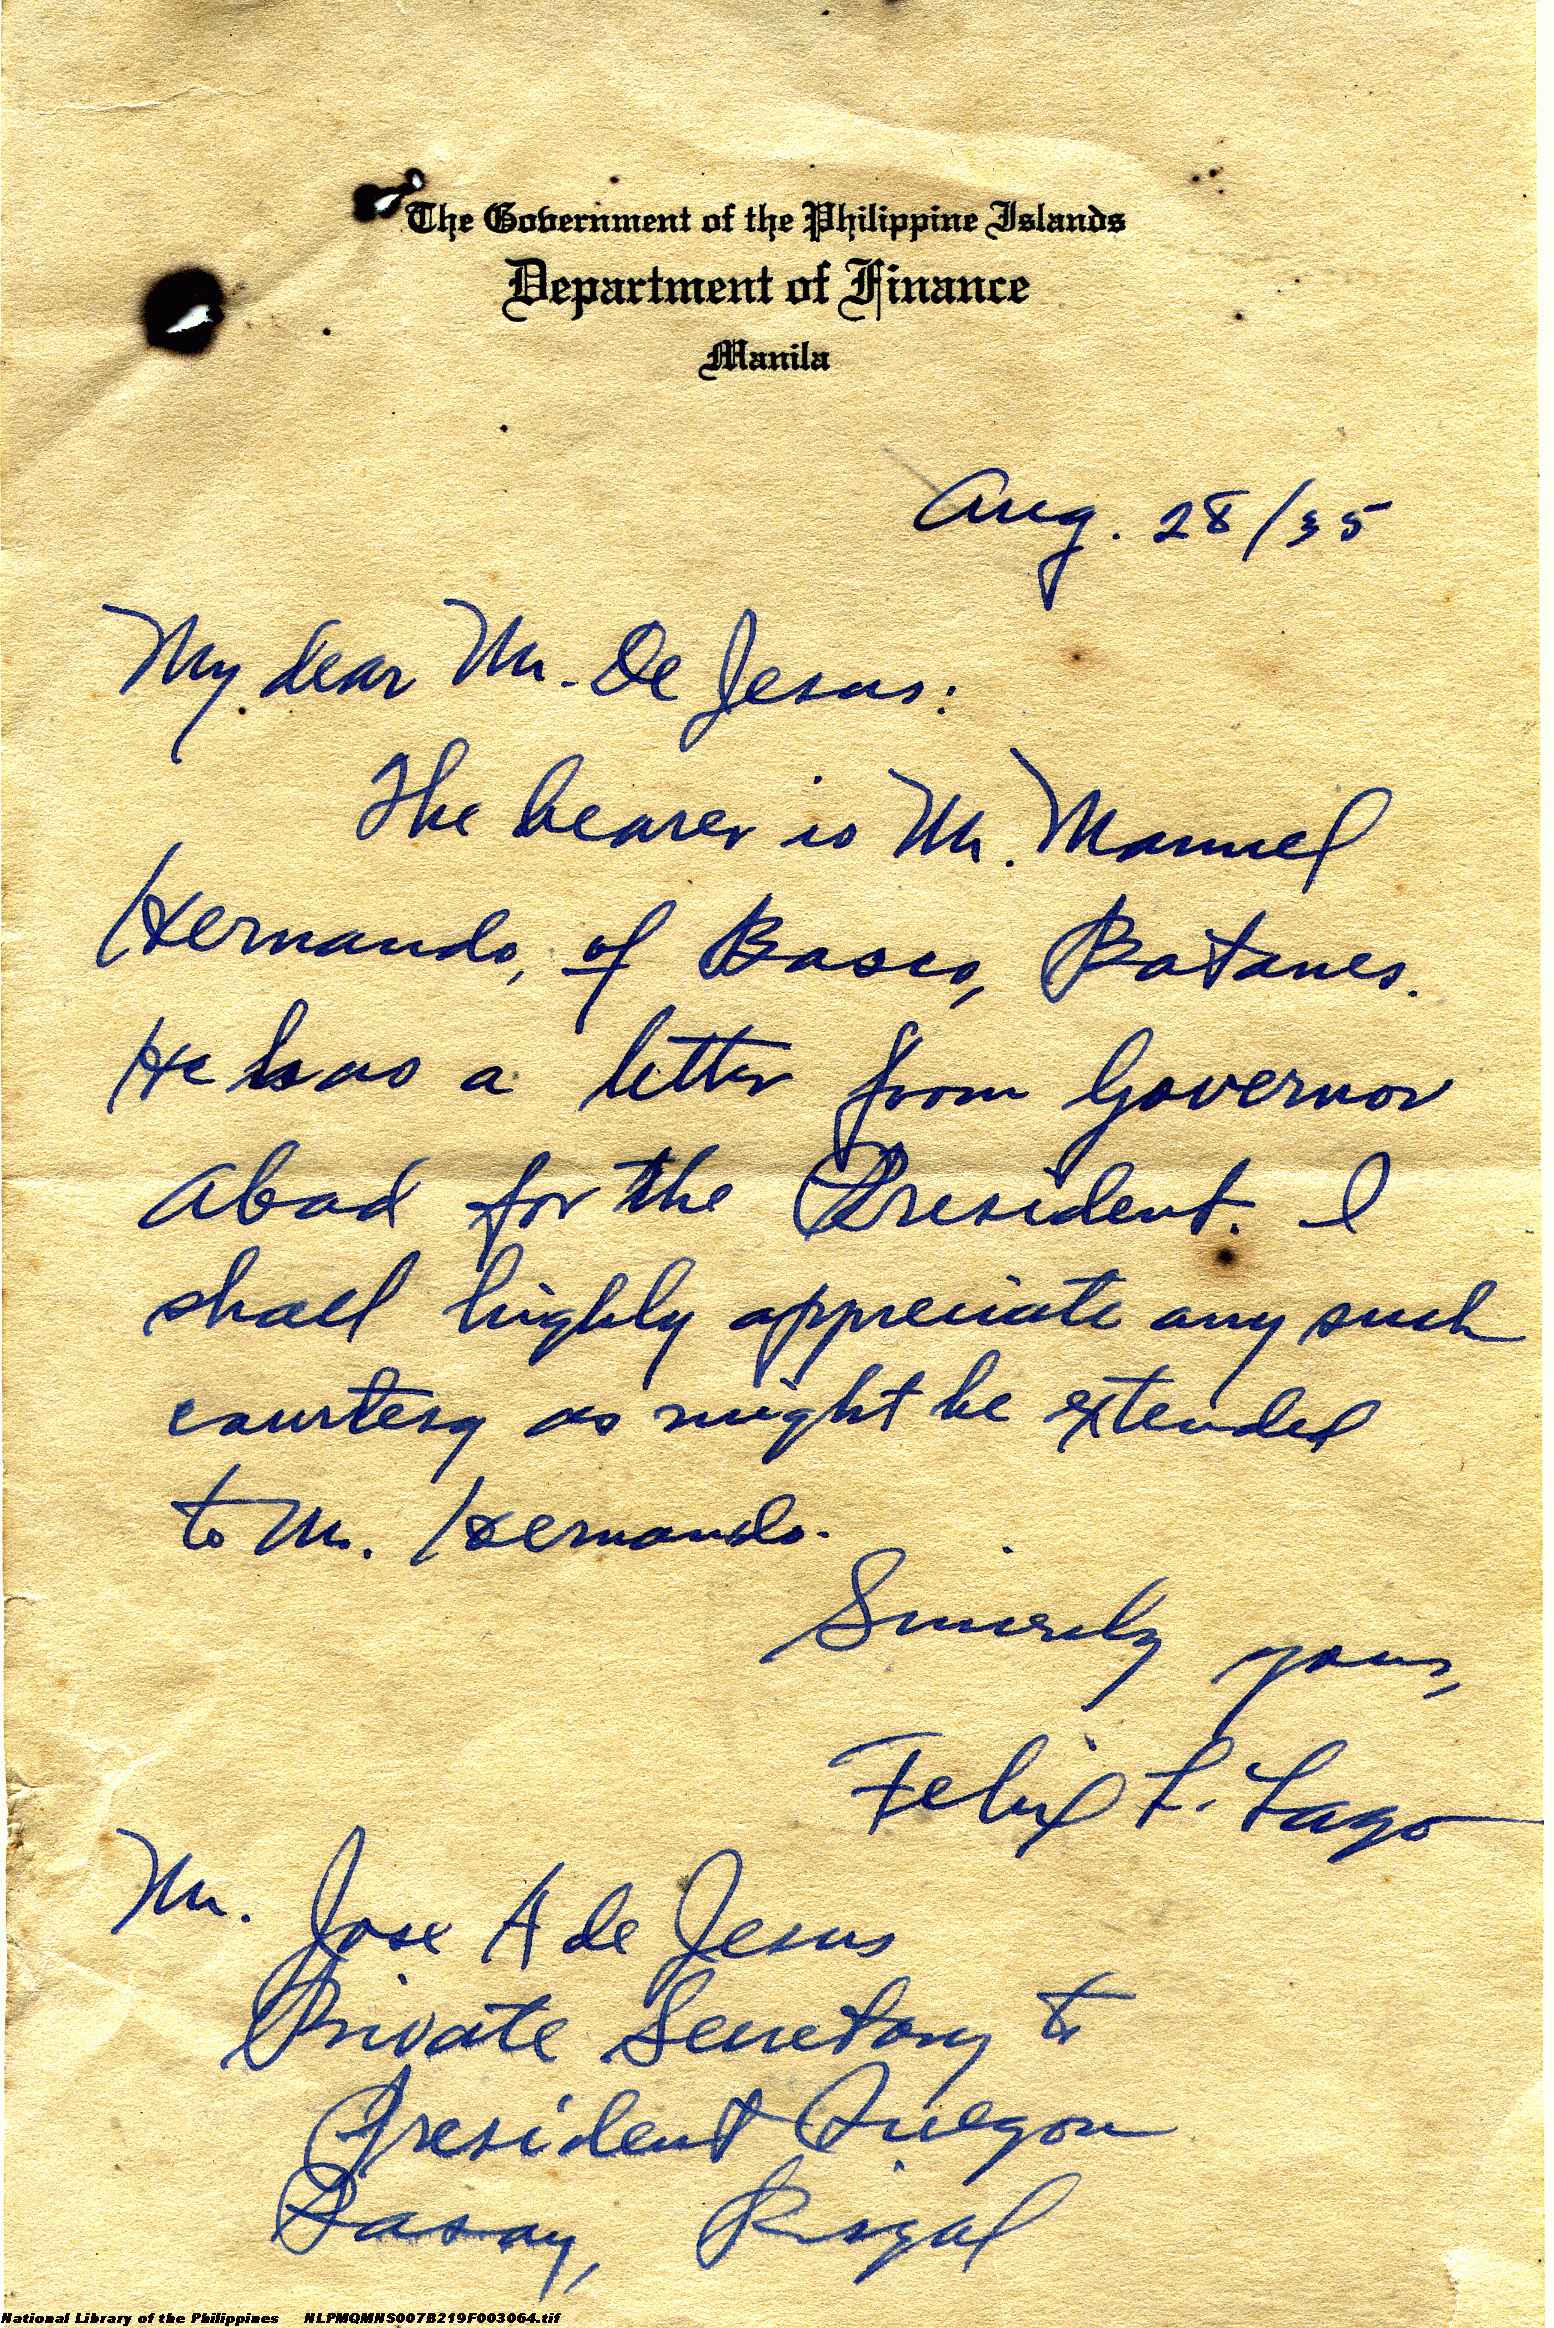 The Government of the Philippine Islands
Department of Finance
Manila
Aug. 28/35
My dear Mr. De Jesus:
The bearer is Mr. Manuel
Hernando, of Basco, Batanes.
He has a letter from Governor
Abad for the President. I
shall highly appreciate any such
courtesy as might be extended
to Mr. Hernando.
Sincerely yours,
Felix L. Lago
Mr. Jose A de Jesus
Private Secretary to
President Quezon
Pasay, Rizal
National Library of the Philippines NLPMQMNS007B219F003064.tif